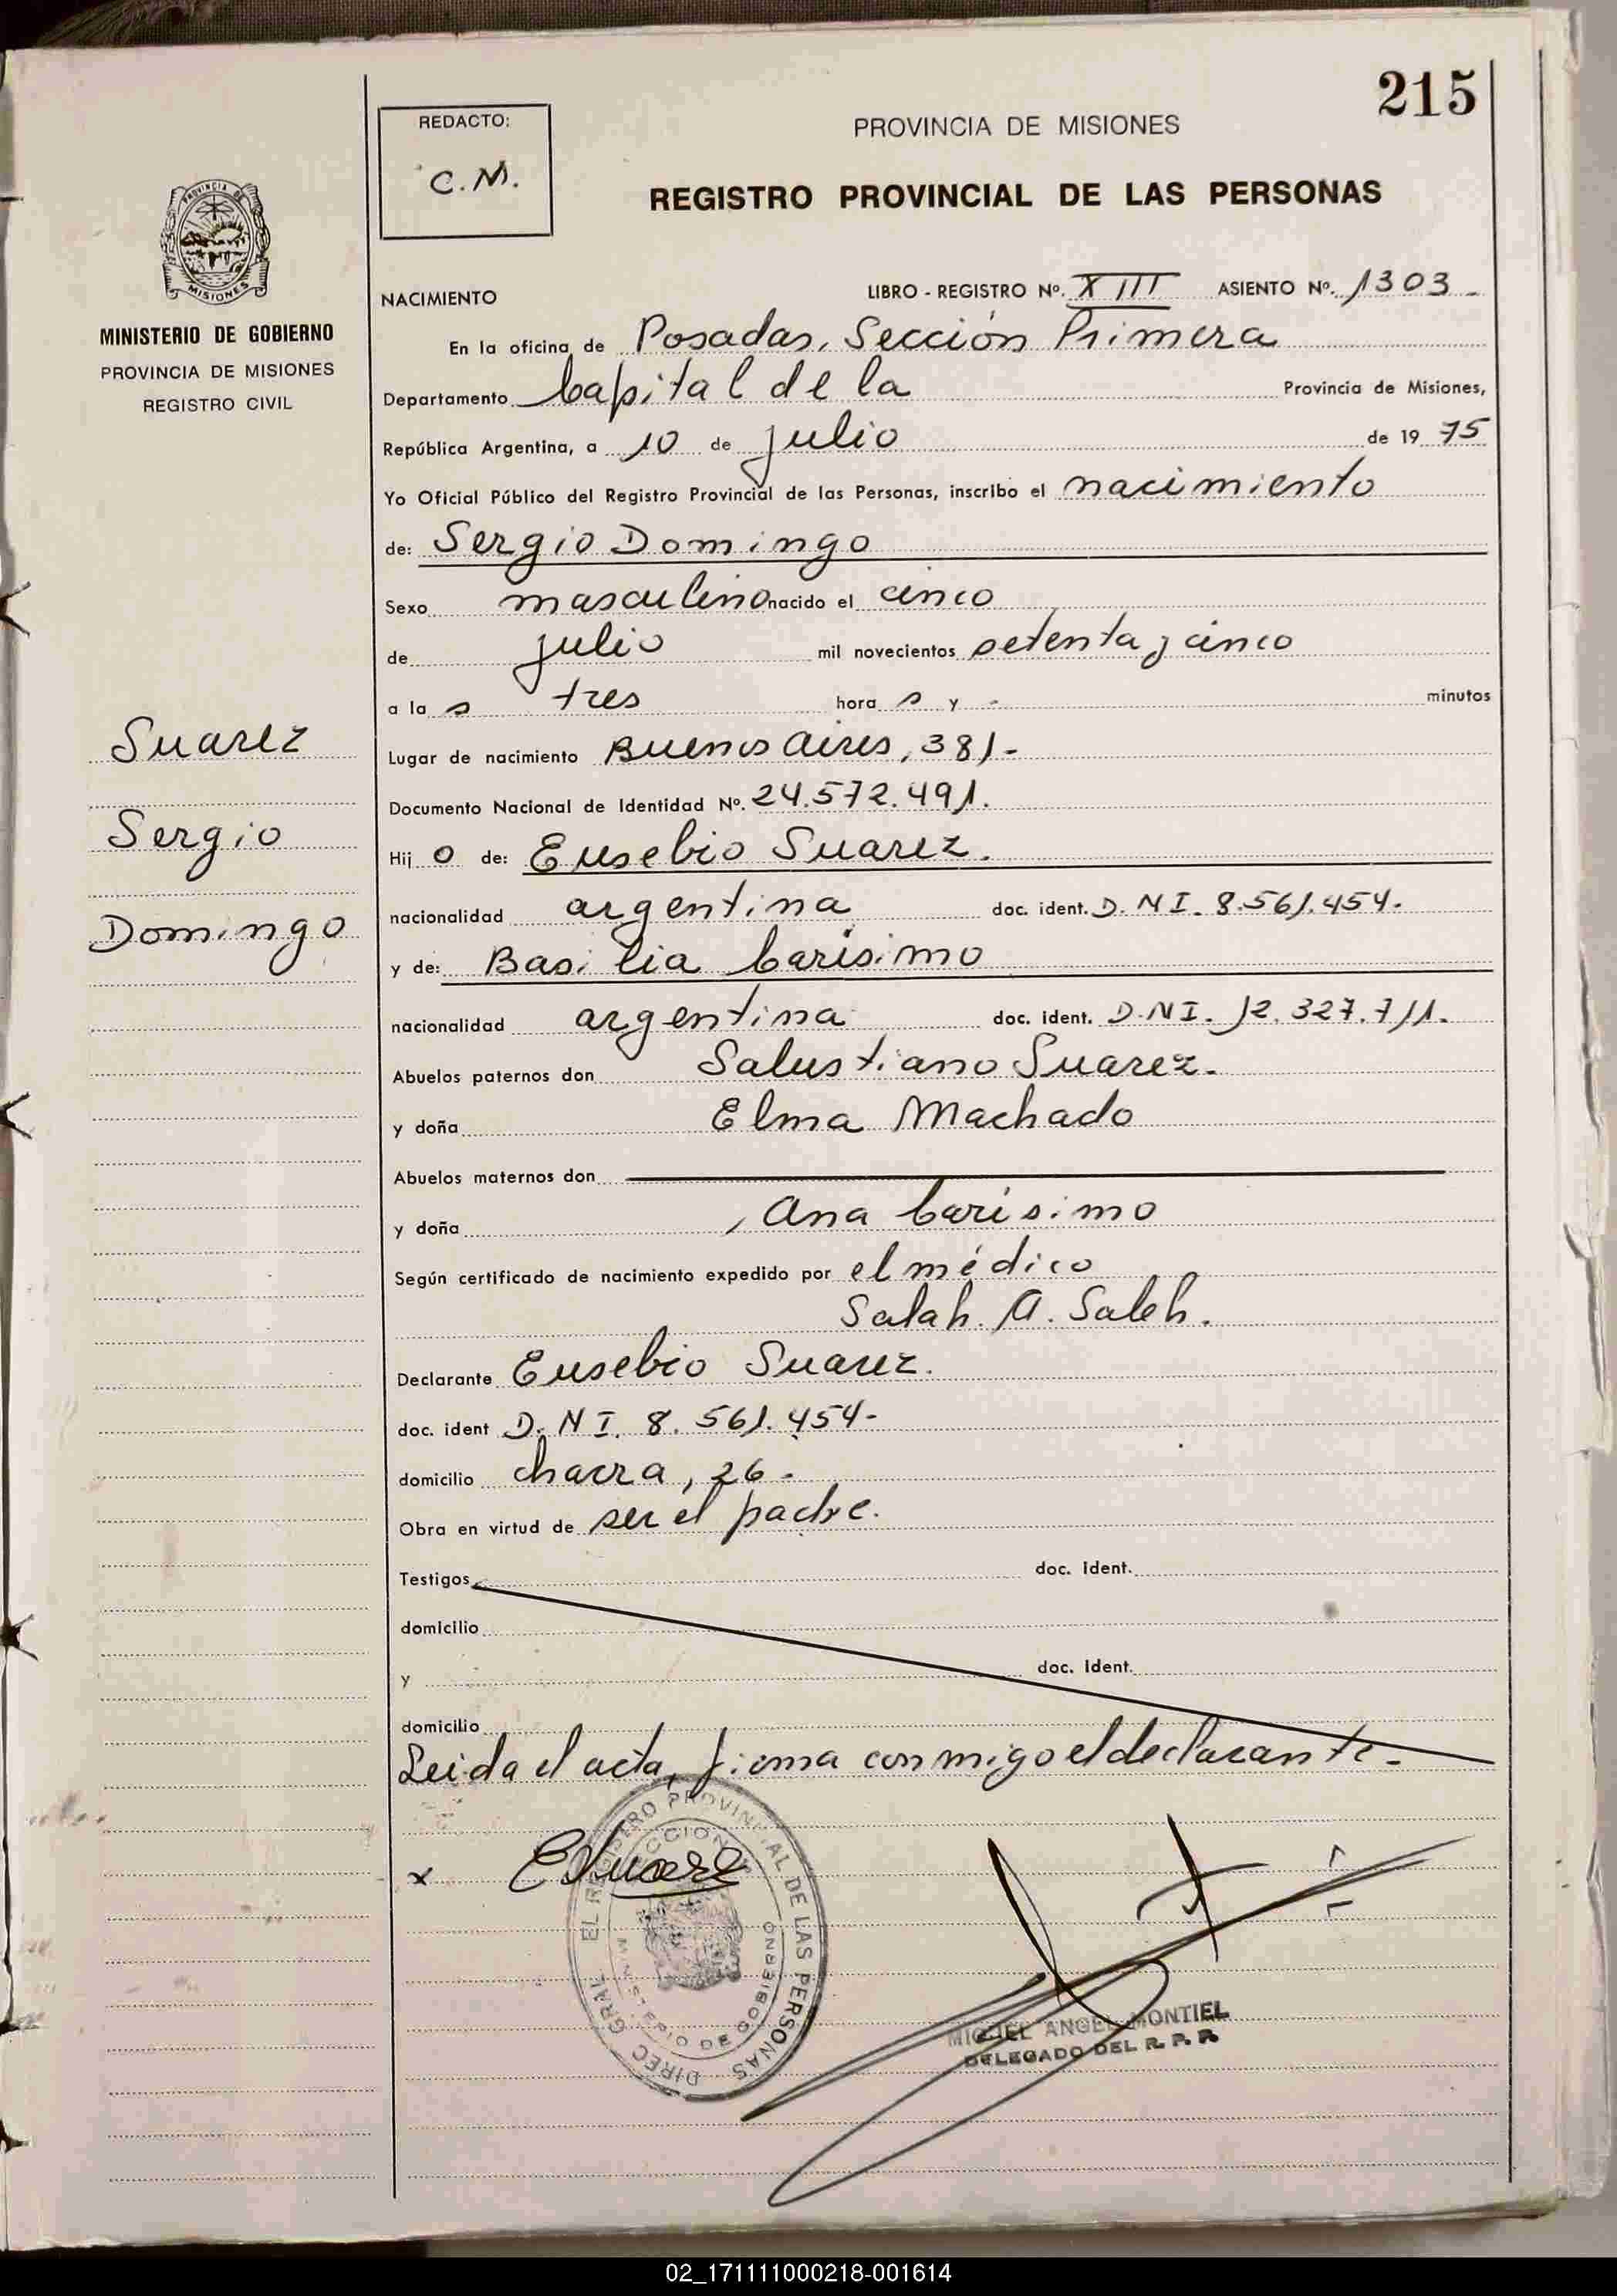 215
REDACTO:
C.M.
PROVINCIA DE MISIONES
REGISTRO PROVINCIAL DE LAS PERSONAS
PROVINCIA DE
MISIONES
MINISTERIO DE GOBIERNO
PROVINCIA DE MISIONES
REGISTRO CIVIL
NACIMIENTO LIBRO - REGISTRO Nº. XIII ASIENTO Nº. 1303-
En la oficina de Posadas, Sección Primera
Departamento Capital de la Provincia de Misiones,
República Argentina, a 10 de julio de 19 75
Yo Oficial Público del Registro Provincial de las Personas, inscribo el nacimiento
de: Sergio Domingo
Sexo masculino nacido el cinco
de julio mil novecientos setenta y cinco
a la s tres hora s y - minutos
Suarez
Sergio
Domingo
Lugar de nacimiento Buenos Aires, 381-
Documento Nacional de Identidad Nº. 24.572.491.
Hij o de: Eusebio Suarez.
nacionalidad argentina doc. ident. D.N I. 8.561.454.
y de: Basilia Carisimo
nacionalidad argentina doc. ident. D.N I. 12.327.711.
Abuelos paternos don Salustiano Suarez.
y doña Elma Machado
Abuelos maternos don
y doña Ana Carisimo
Según certificado de nacimiento expedido por el médico
Salah. A. Saleh.
Declarante Eusebio Suarez.
doc. ident D. N I. 8.561.454-
domicilio chacra, 26-
Obra en virtud de ser el padre.
Testigos doc. ident.
domicilio
y doc. ident.
domicilio
Leida el acta, firma conmigo el declarante-
x ESuarez
DIREC. GRAL. EL REGISTRO PROVINCIAL DE LAS PERSONAS
MINISTERIO DE GOBIERNO
MIGUEL ANGEL MONTIEL
DELEGADO DEL R. P. P.
02_171111000218-001614